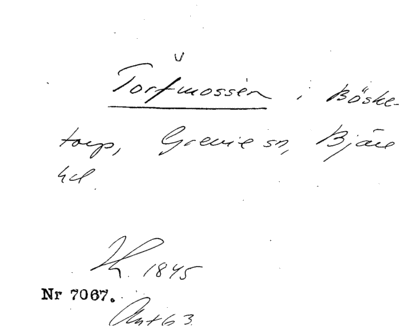 Torfmossen i Böske-
torp, Grevie sn, Bjäre
hd.
1845
Nr 7067.